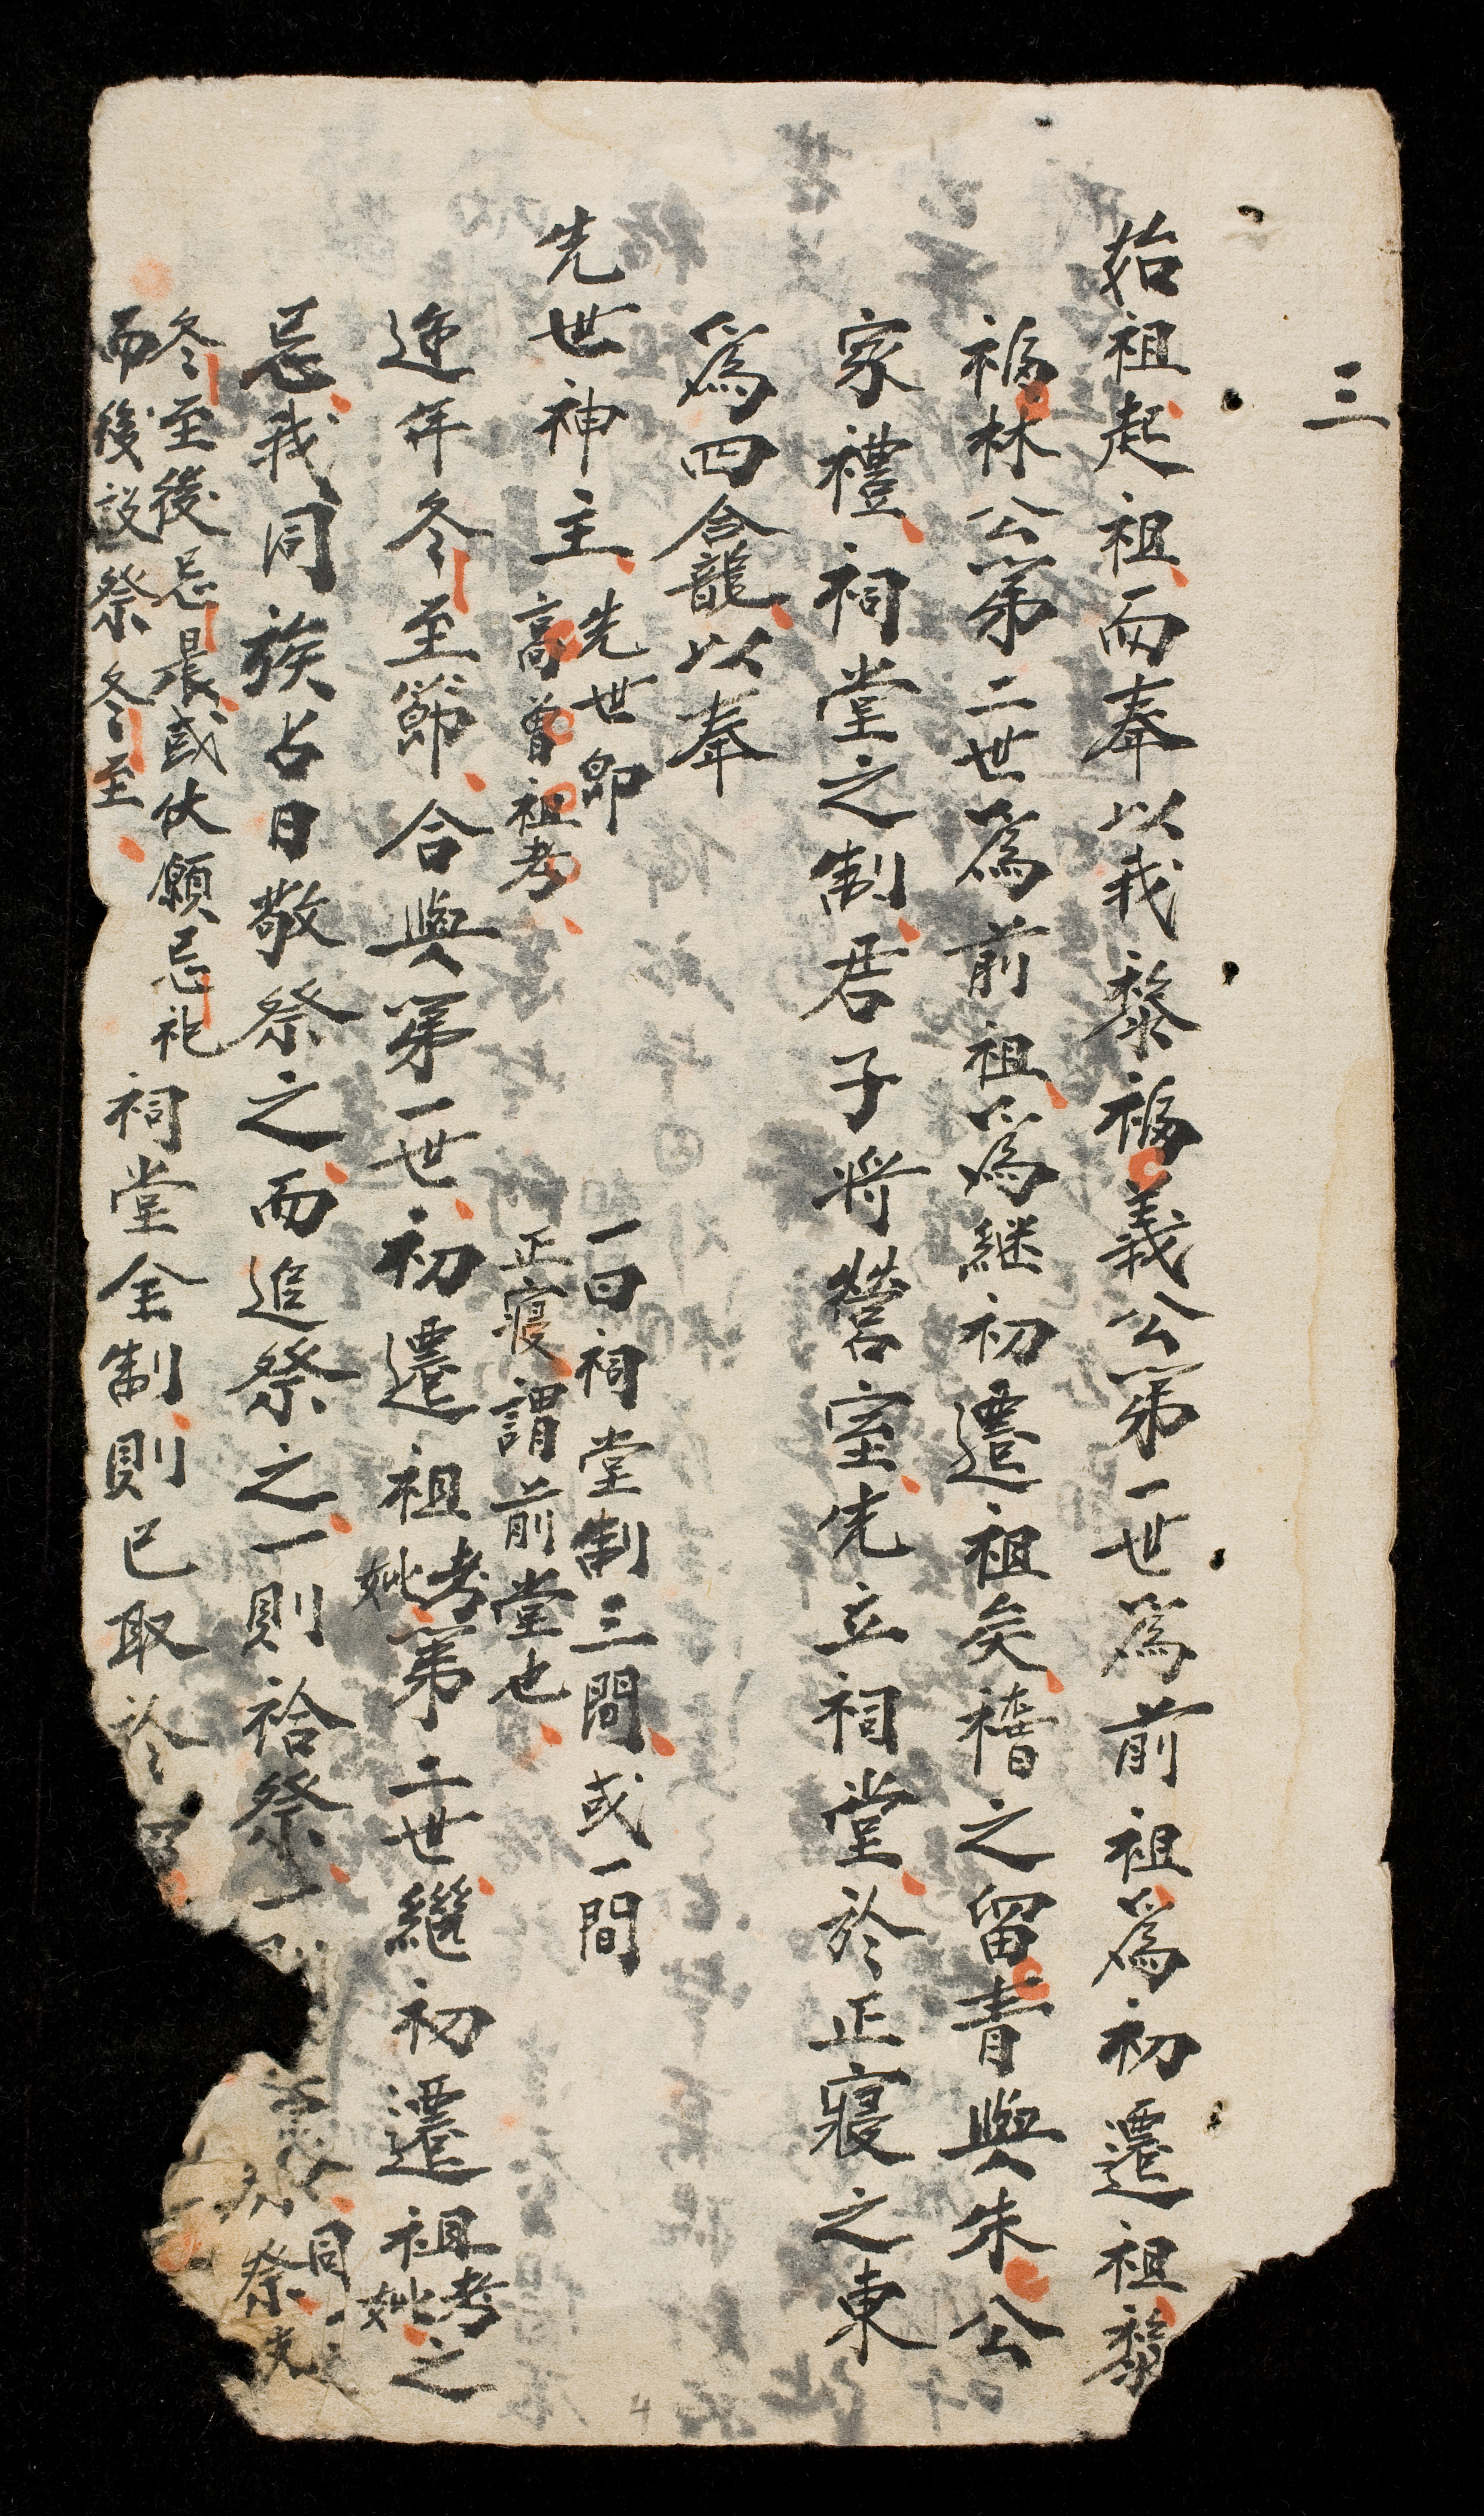 三
始祖起祖而奉以我黎福義公第一世爲前祖爲初遷祖黎
福林公第二世爲前祖爲継初遷祖矣稽之留青與朱公
家禮祠堂之制君子将營室先立祠堂於正寢之東
爲四龕以奉
先世神主
先世卽
高曾祖考
一曰祠堂制三間或一間
正寢謂前堂也
逓年冬至節合與第一世初遷祖考妣第二世繼初遷祖考妣之
忌我同族占日敬祭之而追祭之一則祫祭一
同
祭
冬至後忌晨或伏願忌祀
而後設祭冬至
祠堂全制則已取於